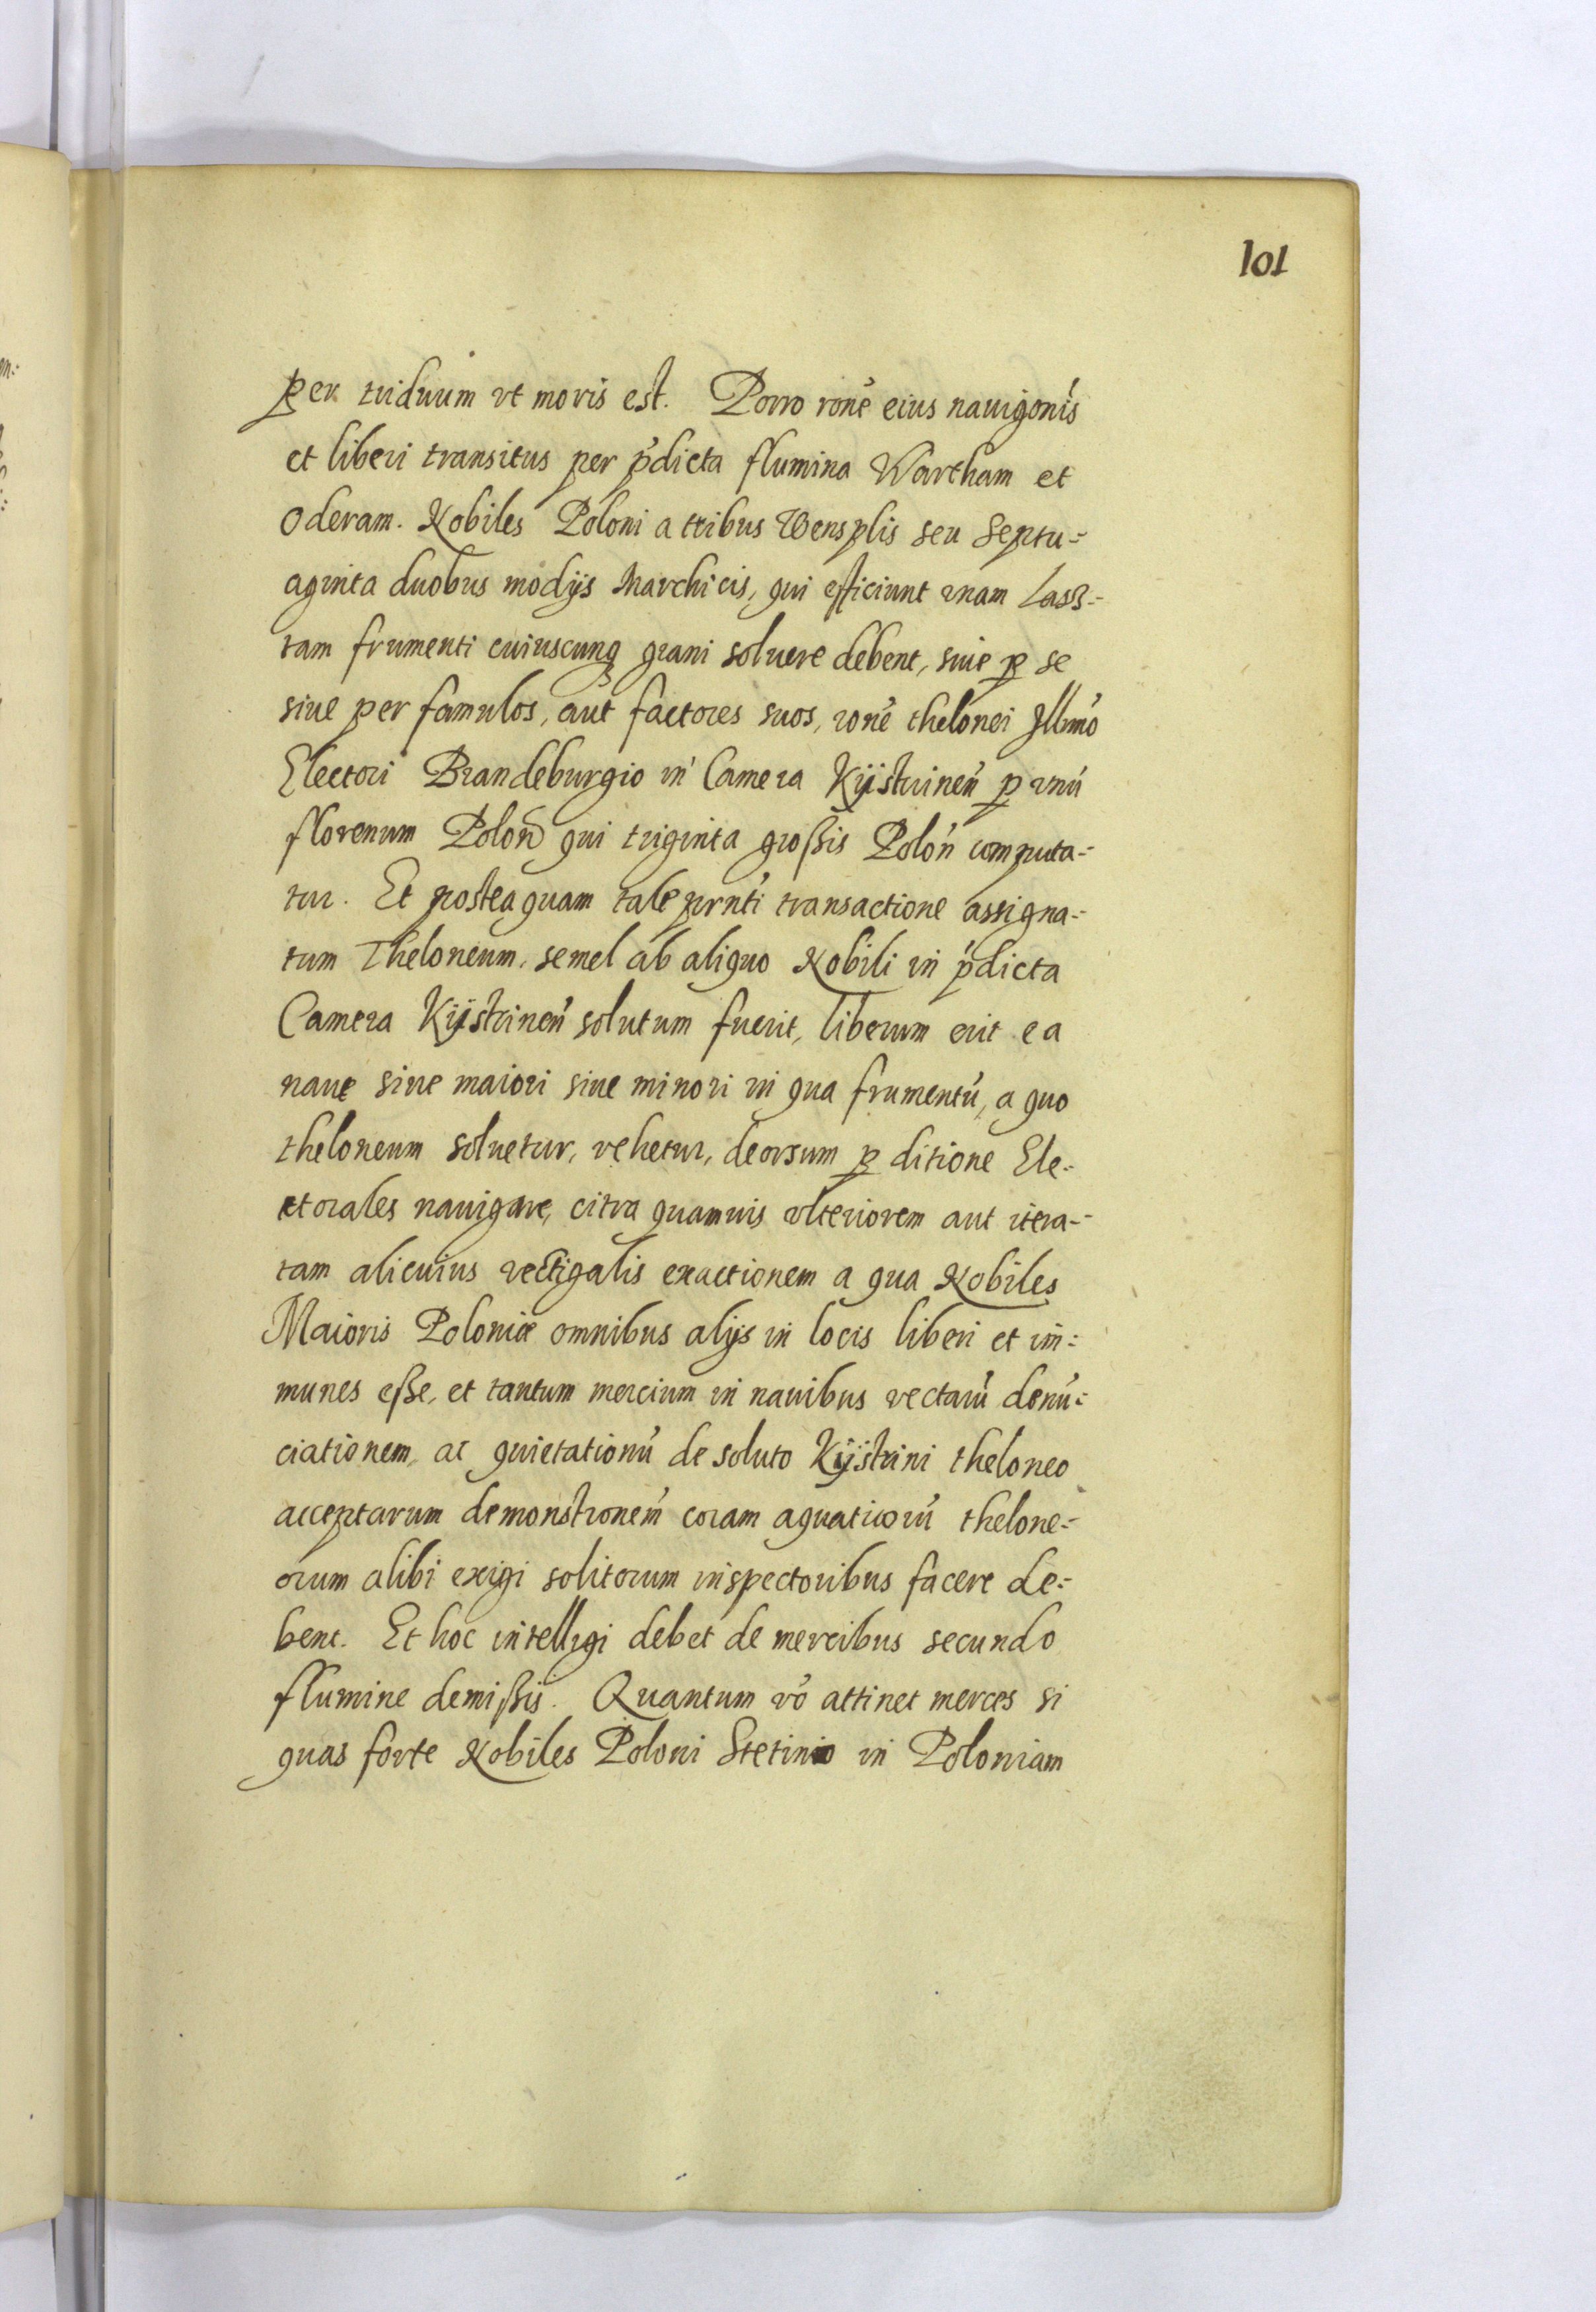 101
per triduum vt moris est. Porro rone eius nauigonis
et liberi transitus per pdicta flumina Wartham et
Oderam. Nobiles Poloni a tribus Wensplis seu Septu-
aginta duobus modijs Marchicis, qui efficiunt vnam Lass-
tam frumenti cuiuscunq grani soluere debent, siue p se
siue per famulos, aut factores suos, rone thelonei Illmo
Electori Brandeburgio in Camera Kÿstrinen p vnu
florenum Polon qui triginta großis Polon computa-
tur. Et posteaquam tale prnti transactione assigna-
tum Theloneum, semel ab aliquo Nobili in pdicta
Camera Kÿstrinen solutum fuerit, liberum erit ea
naue siue maiori siue minori in qua frumentu, a quo
theloneum soluetur, vehetur, deorsum p ditione Ele-
ctorales nauigare, citra quamuis vlteriorem aut itera-
tam alicuius vectigalis exactionem a qua Nobiles
Maioris Poloniæ omnibus alijs in locis liberi et im-
munes eße, et tantum mercium in nauibus vectaru denu-
ciationem, ac quietationu de soluto Kÿstrini theloneo
acceptarum demonstronem coram aquaticoru thelone-
orum alibi exigi solitorum inspectoribus facere de-
bent. Et hoc intelligi debet de mercibus secundo
flumine demißis. Quantum vo attinet merces si
quas forte Nobiles Poloni Stetinio in Poloniam